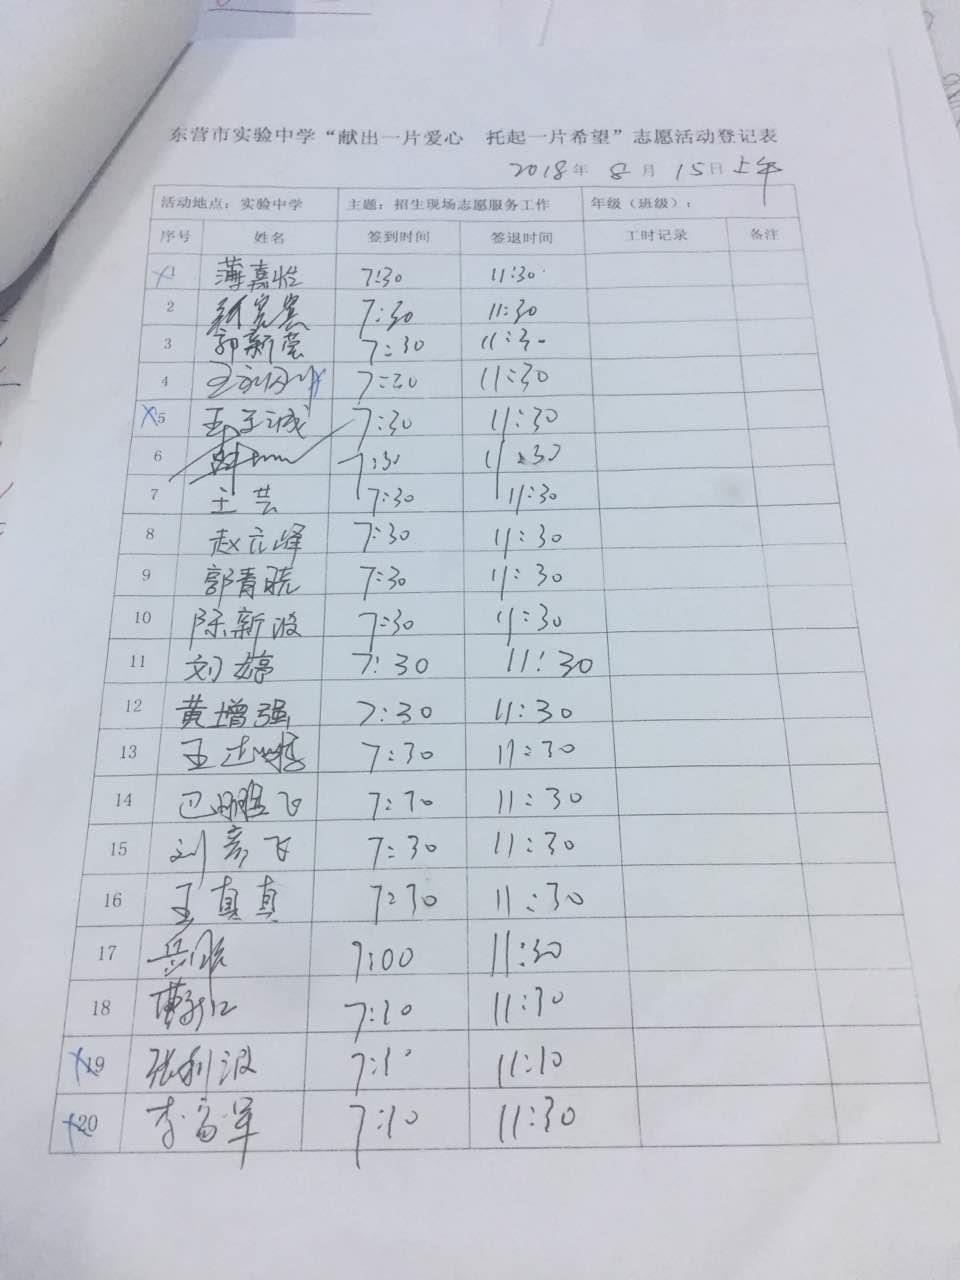 东营市实验中学“献出一片爱心 托起一片希望”志愿活动登记表
2018年 8月 15日上午
活动地点：实验中学 主题：招生现场志愿服务工作 年级（班级）：
序号 姓名 签到时间 签退时间 工时记录 备注
1 薄嘉怡 7:30 11:30
2 7:30 11:30
3 郭新莹 7:30 11:30
4 7:20 11:30
5 王子诚 7:30 11:30
6 7:30 11:30
7 王芸 7:30 11:30
8 赵立峰 7:30 11:30
9 郭青晓 7:30 11:30
10 陈新波 7:30 11:30
11 刘婷 7:30 11:30
12 黄增强 7:30 11:30
13 王 7:30 11:30
14 巴鹏飞 7:30 11:30
15 刘彦飞 7:30 11:30
16 王真真 7:30 11:30
17 7:00 11:30
18 曹 7:30 11:30
19 张利波 7:10 11:10
20 李富军 7:10 11:30